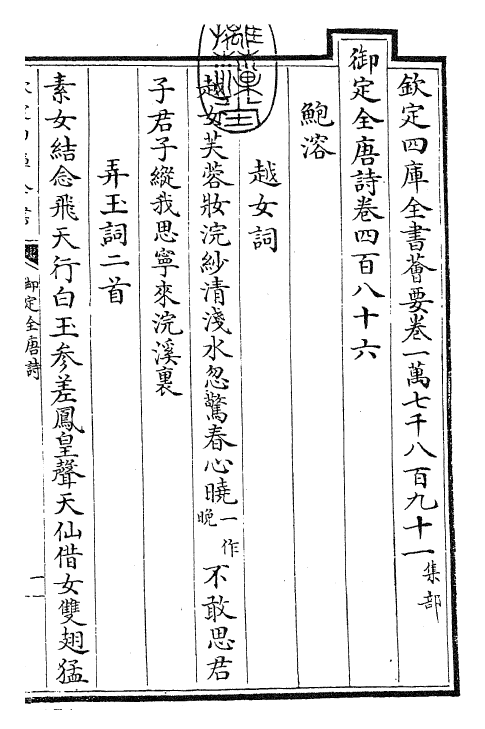 欽定四庫全書薈要卷一萬七千八百九十一集部
御定全唐詩卷四百八十六
鮑溶
越女詞
越女芙蓉妝浣紗清淺水忽驚春心曉一作晚不敢思君
子君子縱我思寧來浣溪裏
弄玉詞二首
素女結念飛天行白玉參差鳳皇聲天仙借女雙翅猛
御定全唐詩
一